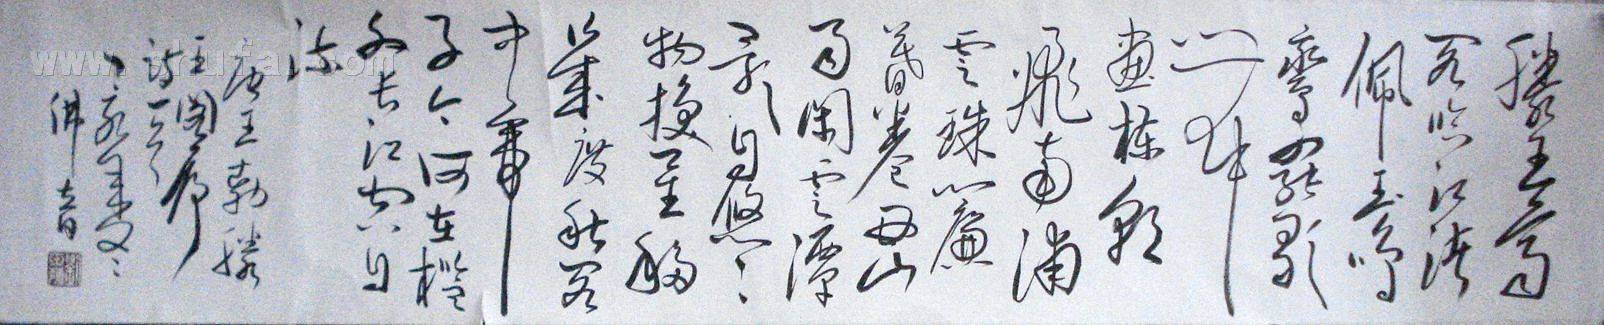 滕王高
阁临江渚
佩玉鸣
鸾罢歌
舞
画栋朝
飞南浦
云珠簾
暮卷西山
雨闲云潭
影日悠悠
物换星移
几度秋阁
中帝
子今何在槛
外长江空自
流
唐王勃滕
王阁序
诗一首